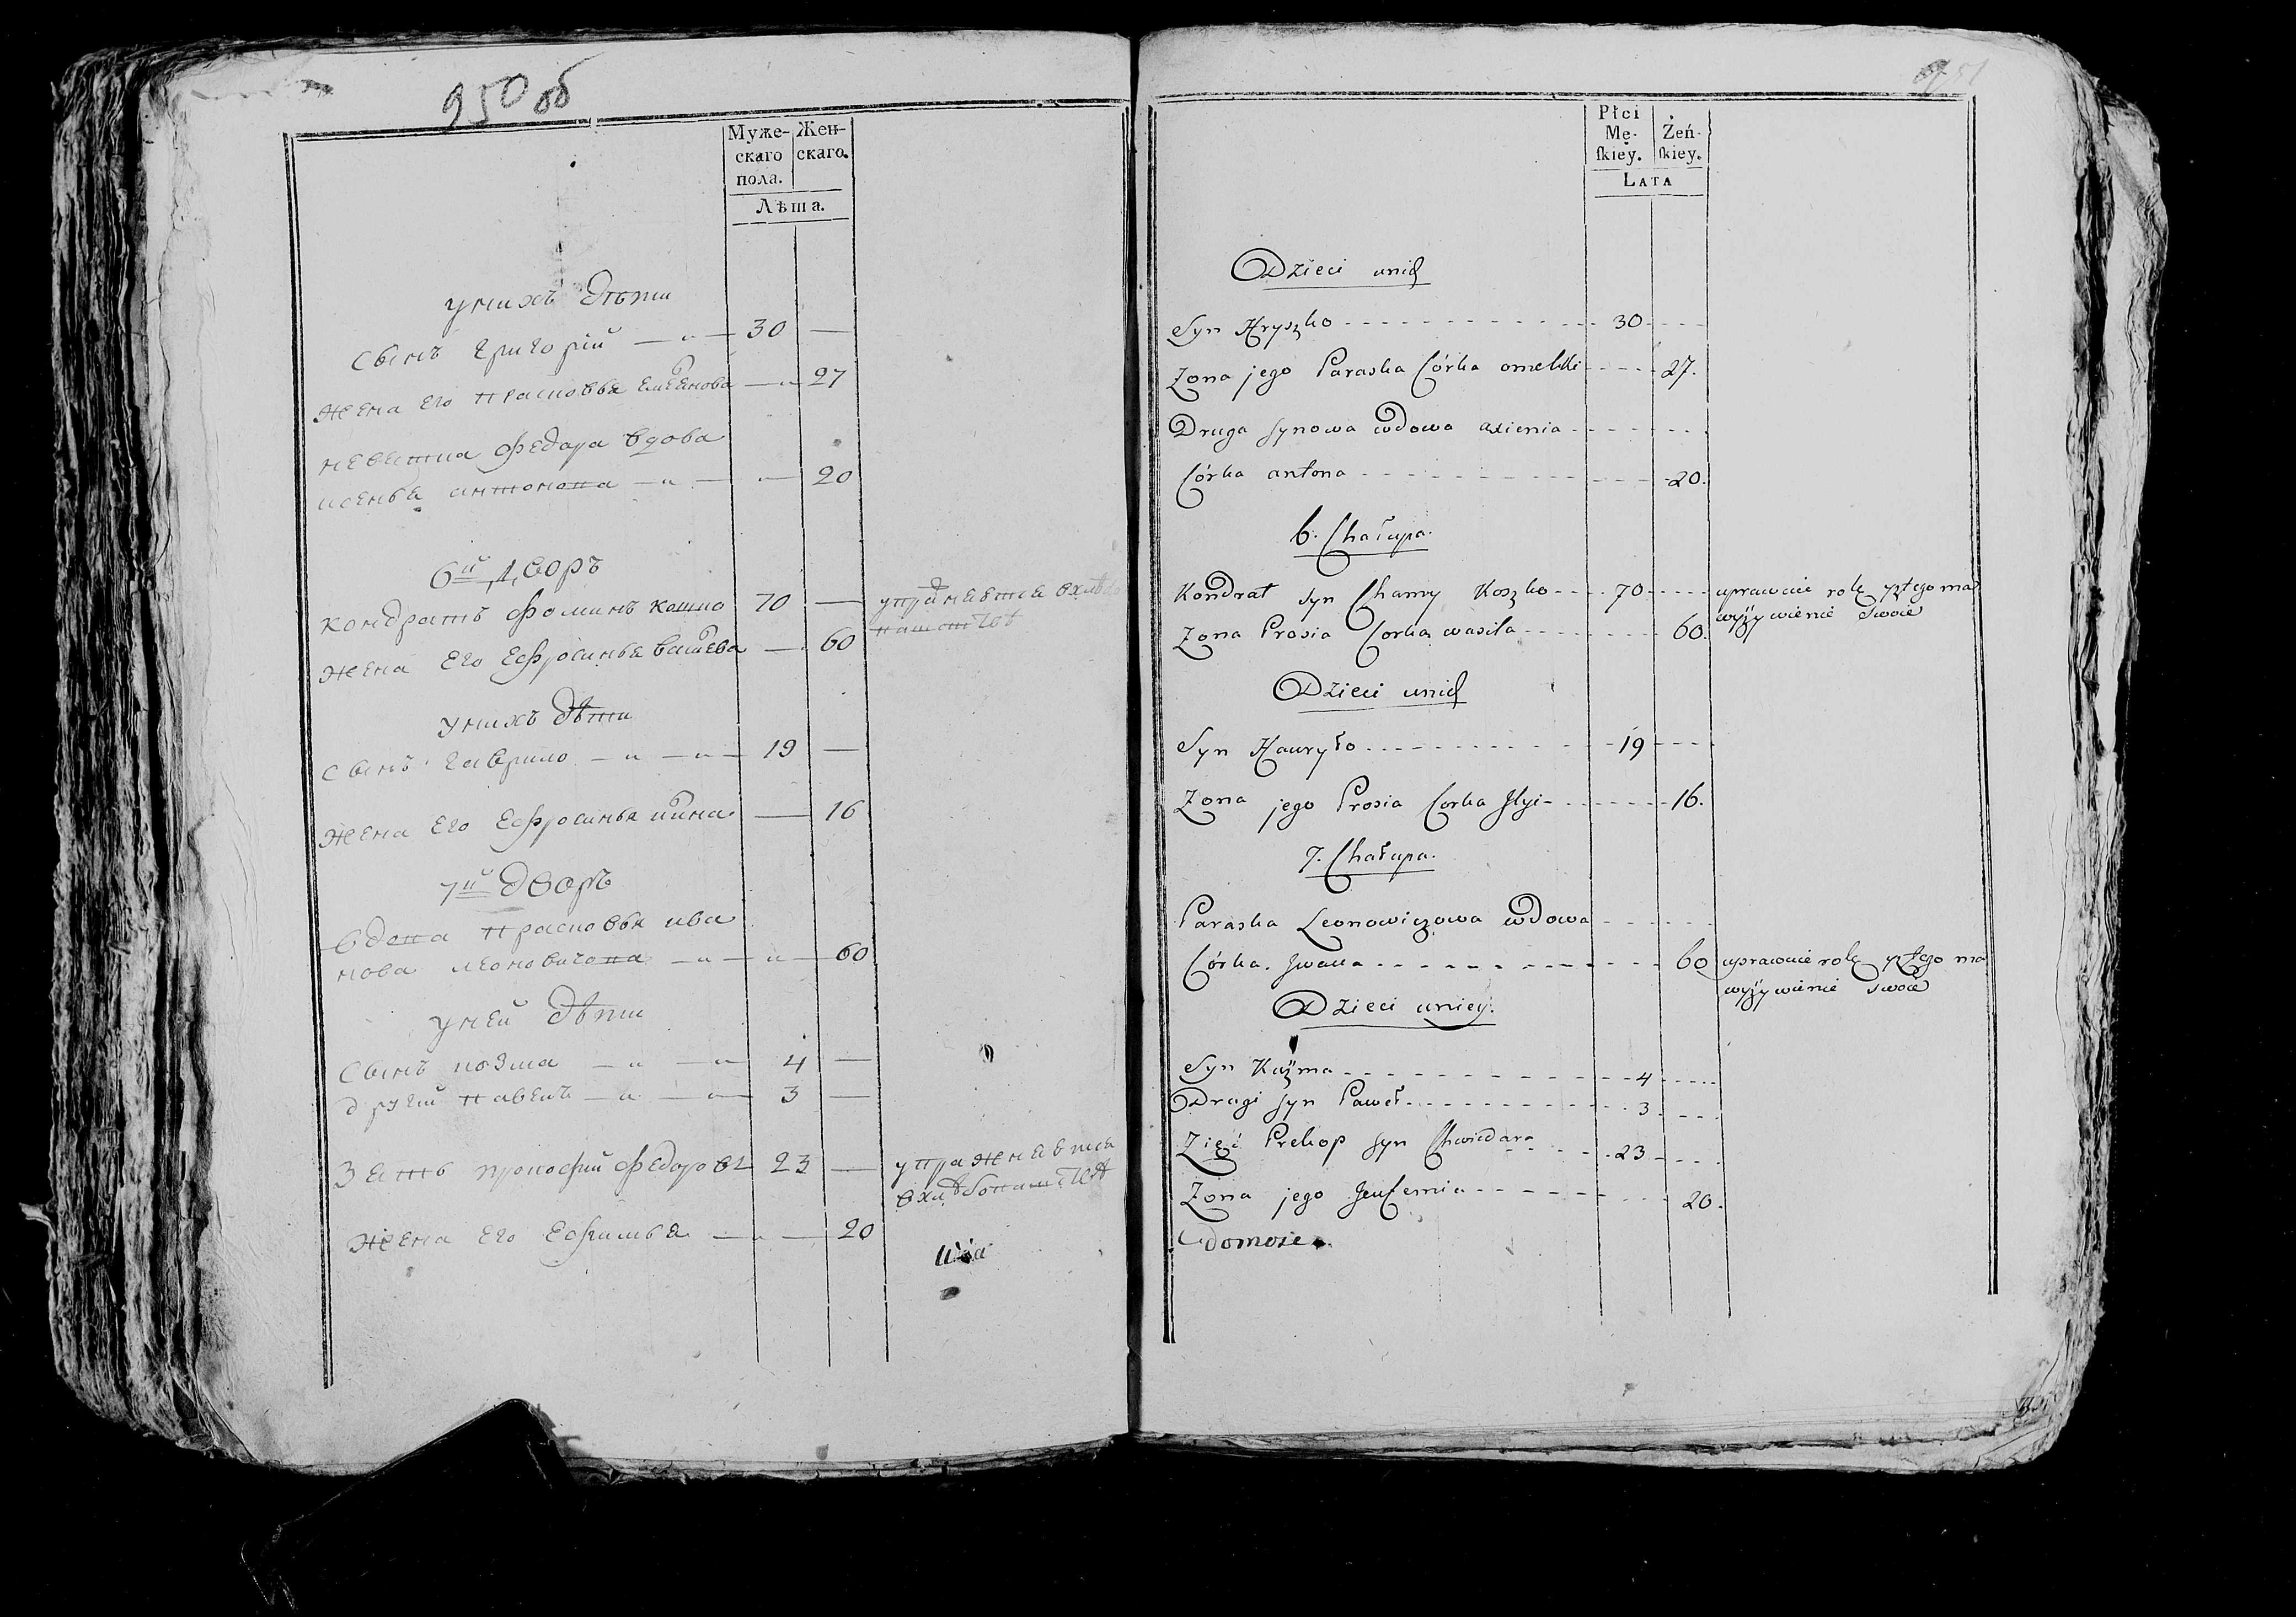 950 об
Муже- Жен-
скаго скаго.
пола.
Лѣта.
у нихъ дѣти
сынъ григорій 30
жена его прасковья емельянова 27
невестка федора вдова
ксенья антонова 20
6й дворъ
кондратъ фоминъ кошко 70 упражняется в хлебо
пашестве
жена его ефросинья васильева 60
у нихъ дѣти
сынъ гаврило 19
жена его ефросинья ильина 16
7й дворъ
вдова прасковья ива
нова леоновичова 60
у ней дѣти
сынъ козма 4
другий павелъ 3
зять прокофий федоровъ 23 упражняется
в хлебопашестве
жена его ефимья 20
Płci
Mę- Żeń-
ſkiey. ſkiey.
LATA
Dzieci unich
Syn Hryszko 30
Zona jego Paraska Córka omelki 27.
Druga synowa wdowa axienia
Córka antona 20.
6. Chałupa.
Kondrat syn Chamy Koszko 70 uprawuie rolę yztego ma
wyżywienie swoie
Zona Prosia Corka wasila 60.
Dzieci unich
Syn Hawryło 19
Zona jego Prosia Corka Jlyi 16.
7. Chałupa.
Paraska Leonowiczowa wdowa
Córka Jwana 60 uprawuie rolę yztego ma
wyżywienie swoie
Dzieci uniey.
Syn Kuźma 4
Drugi syn Paweł 3
Zięć Prekop syn Chwiedara 23
Zona jego Jeufemia 20.